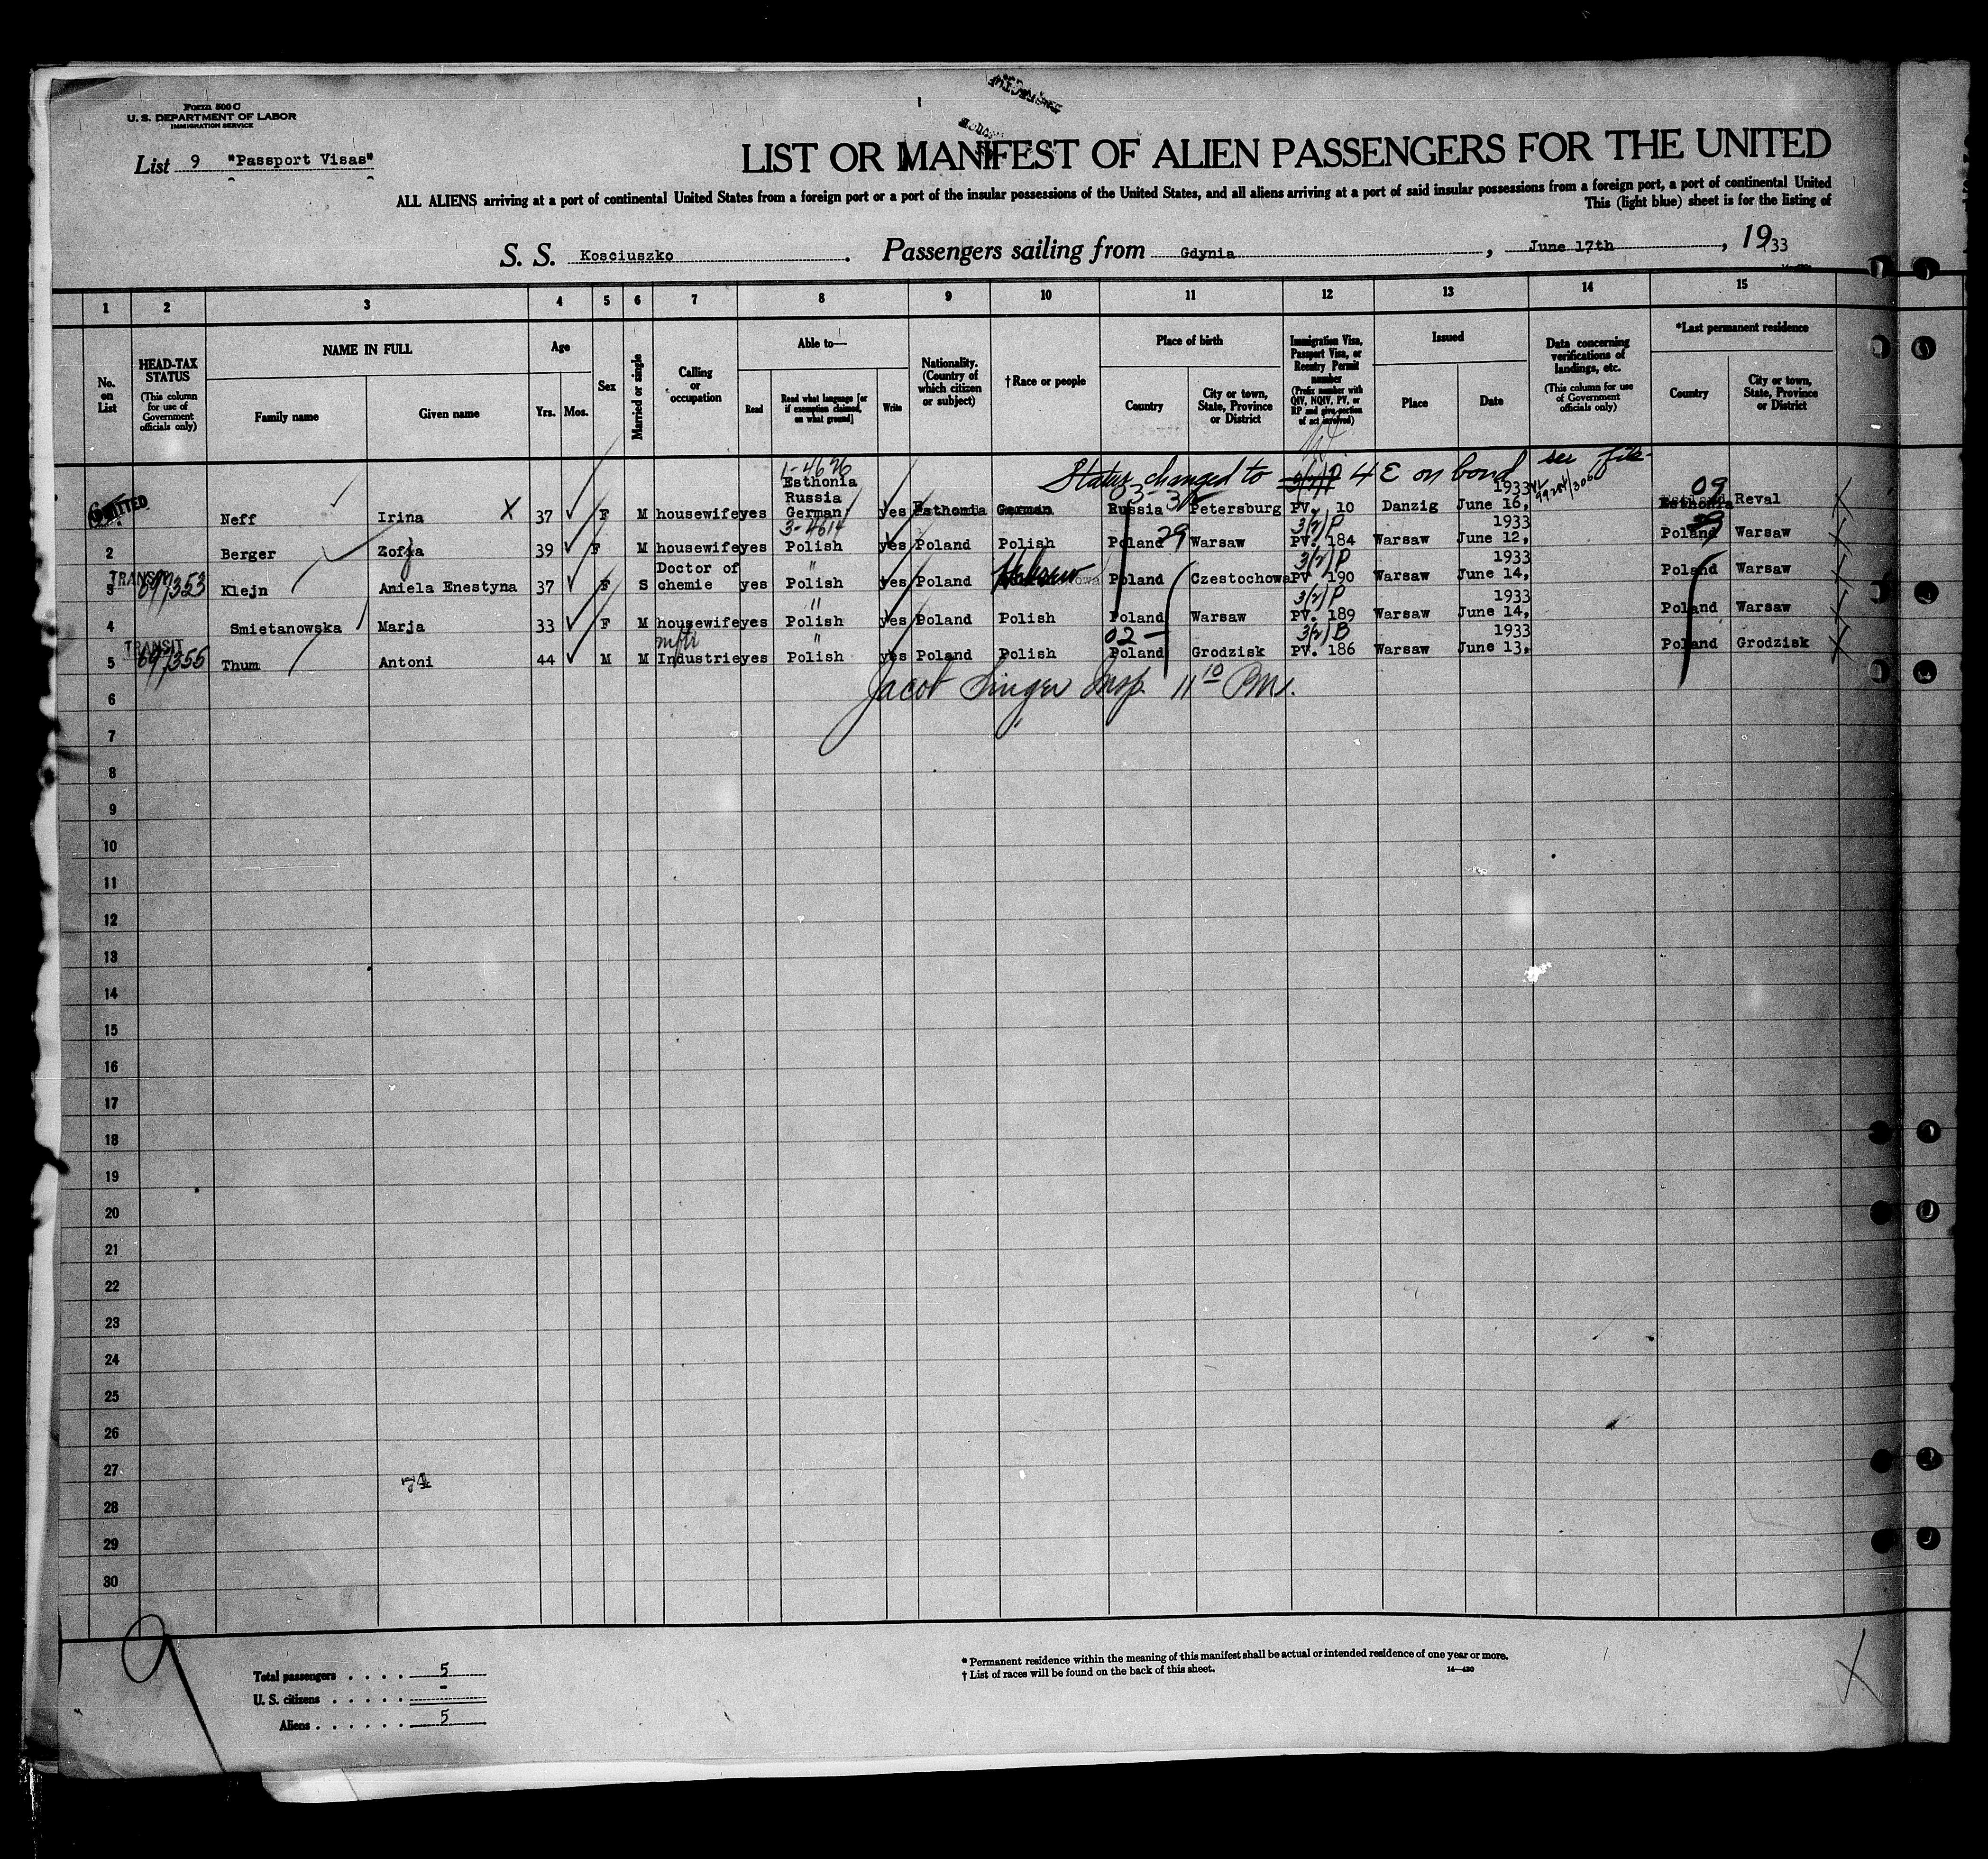 Form 500 C
U. S. DEPARTMENT OF LABOR
IMMIGRATION SERVICE
List 9 "Passport Visas"
LIST OR MANIFEST OF ALIEN PASSENGERS FOR THE UNITED
ALL ALIENS arriving at a port of continental United States from a foreign port or a port of the insular possessions of the United States, and all aliens arriving at a port of said insular possessions from a foreign port, a port of continental United
This (light blue) sheet is for the listing of
S. S. Kosciuszko. Passengers sailing from Gdynia, June 17th, 1933
1 2 3 4 5 6 7 8 9 10 11 12 13 14 15
No. on List
HEAD-TAX STATUS (This column for use of Government officials only)
NAME IN FULL
Family name
Given name
Age
Yrs. Mos.
Sex
Married or single
Calling or occupation
Able to—
Read
Read what language [or if exemption claimed, on what ground]
Write
Nationality. (Country of which citizen or subject)
† Race or people
Place of birth
Country
City or town, State, Province or District
Immigration Visa, Passport Visa, or Reentry Permit number (Prefix number with QIV, NQIV, PV, or RP and give section of act involved)
Issued
Place
Date
Data concerning verifications of landings, etc. (This column for use of Government officials only)
*Last permanent residence
Country
City or town, State, Province or District
Status changed to 3/2/P 4 E on bond see file
1-4626
Esthonia 1933 09
Russia
Neff Irina X 37 F M housewife yes German, yes Esthonia German Russia Petersburg PV. 10 Danzig June 16, Esthonia Reval
3-4614 3/2/P 1933
2 Berger Zofja 39 F M housewife yes Polish yes Poland Polish Poland 29 Warsaw PV. 184 Warsaw June 12, Poland Warsaw
TRANSIT Doctor of " 3/2/P 1933
3 69/353 Klejn Aniela Enestyna 37 F S chemie yes Polish yes Poland Hebrew Poland Czestochowa PV 190 Warsaw June 14, Poland Warsaw
" 3/2/P 1933
4 Smietanowska Marja 33 F M housewife yes Polish yes Poland Polish Poland Warsaw PV. 189 Warsaw June 14, Poland Warsaw
TRANSIT " 02 — 3/2/B 1933
5 69/355 Thum Antoni 44 M M Industrie yes Polish yes Poland Polish Poland Grodzisk PV. 186 Warsaw June 13, Poland Grodzisk
Jacob Singer Insp. 11 10 P.M.
6
7
8
9
10
11
12
13
14
15
16
17
18
19
20
21
22
23
24
25
26
27
74
28
29
30
9
Total passengers . . . . 5
U. S. citizens . . . . . -
Aliens . . . . . . 5
* Permanent residence within the meaning of this manifest shall be actual or intended residence of one year or more.
† List of races will be found on the back of this sheet.
14—430